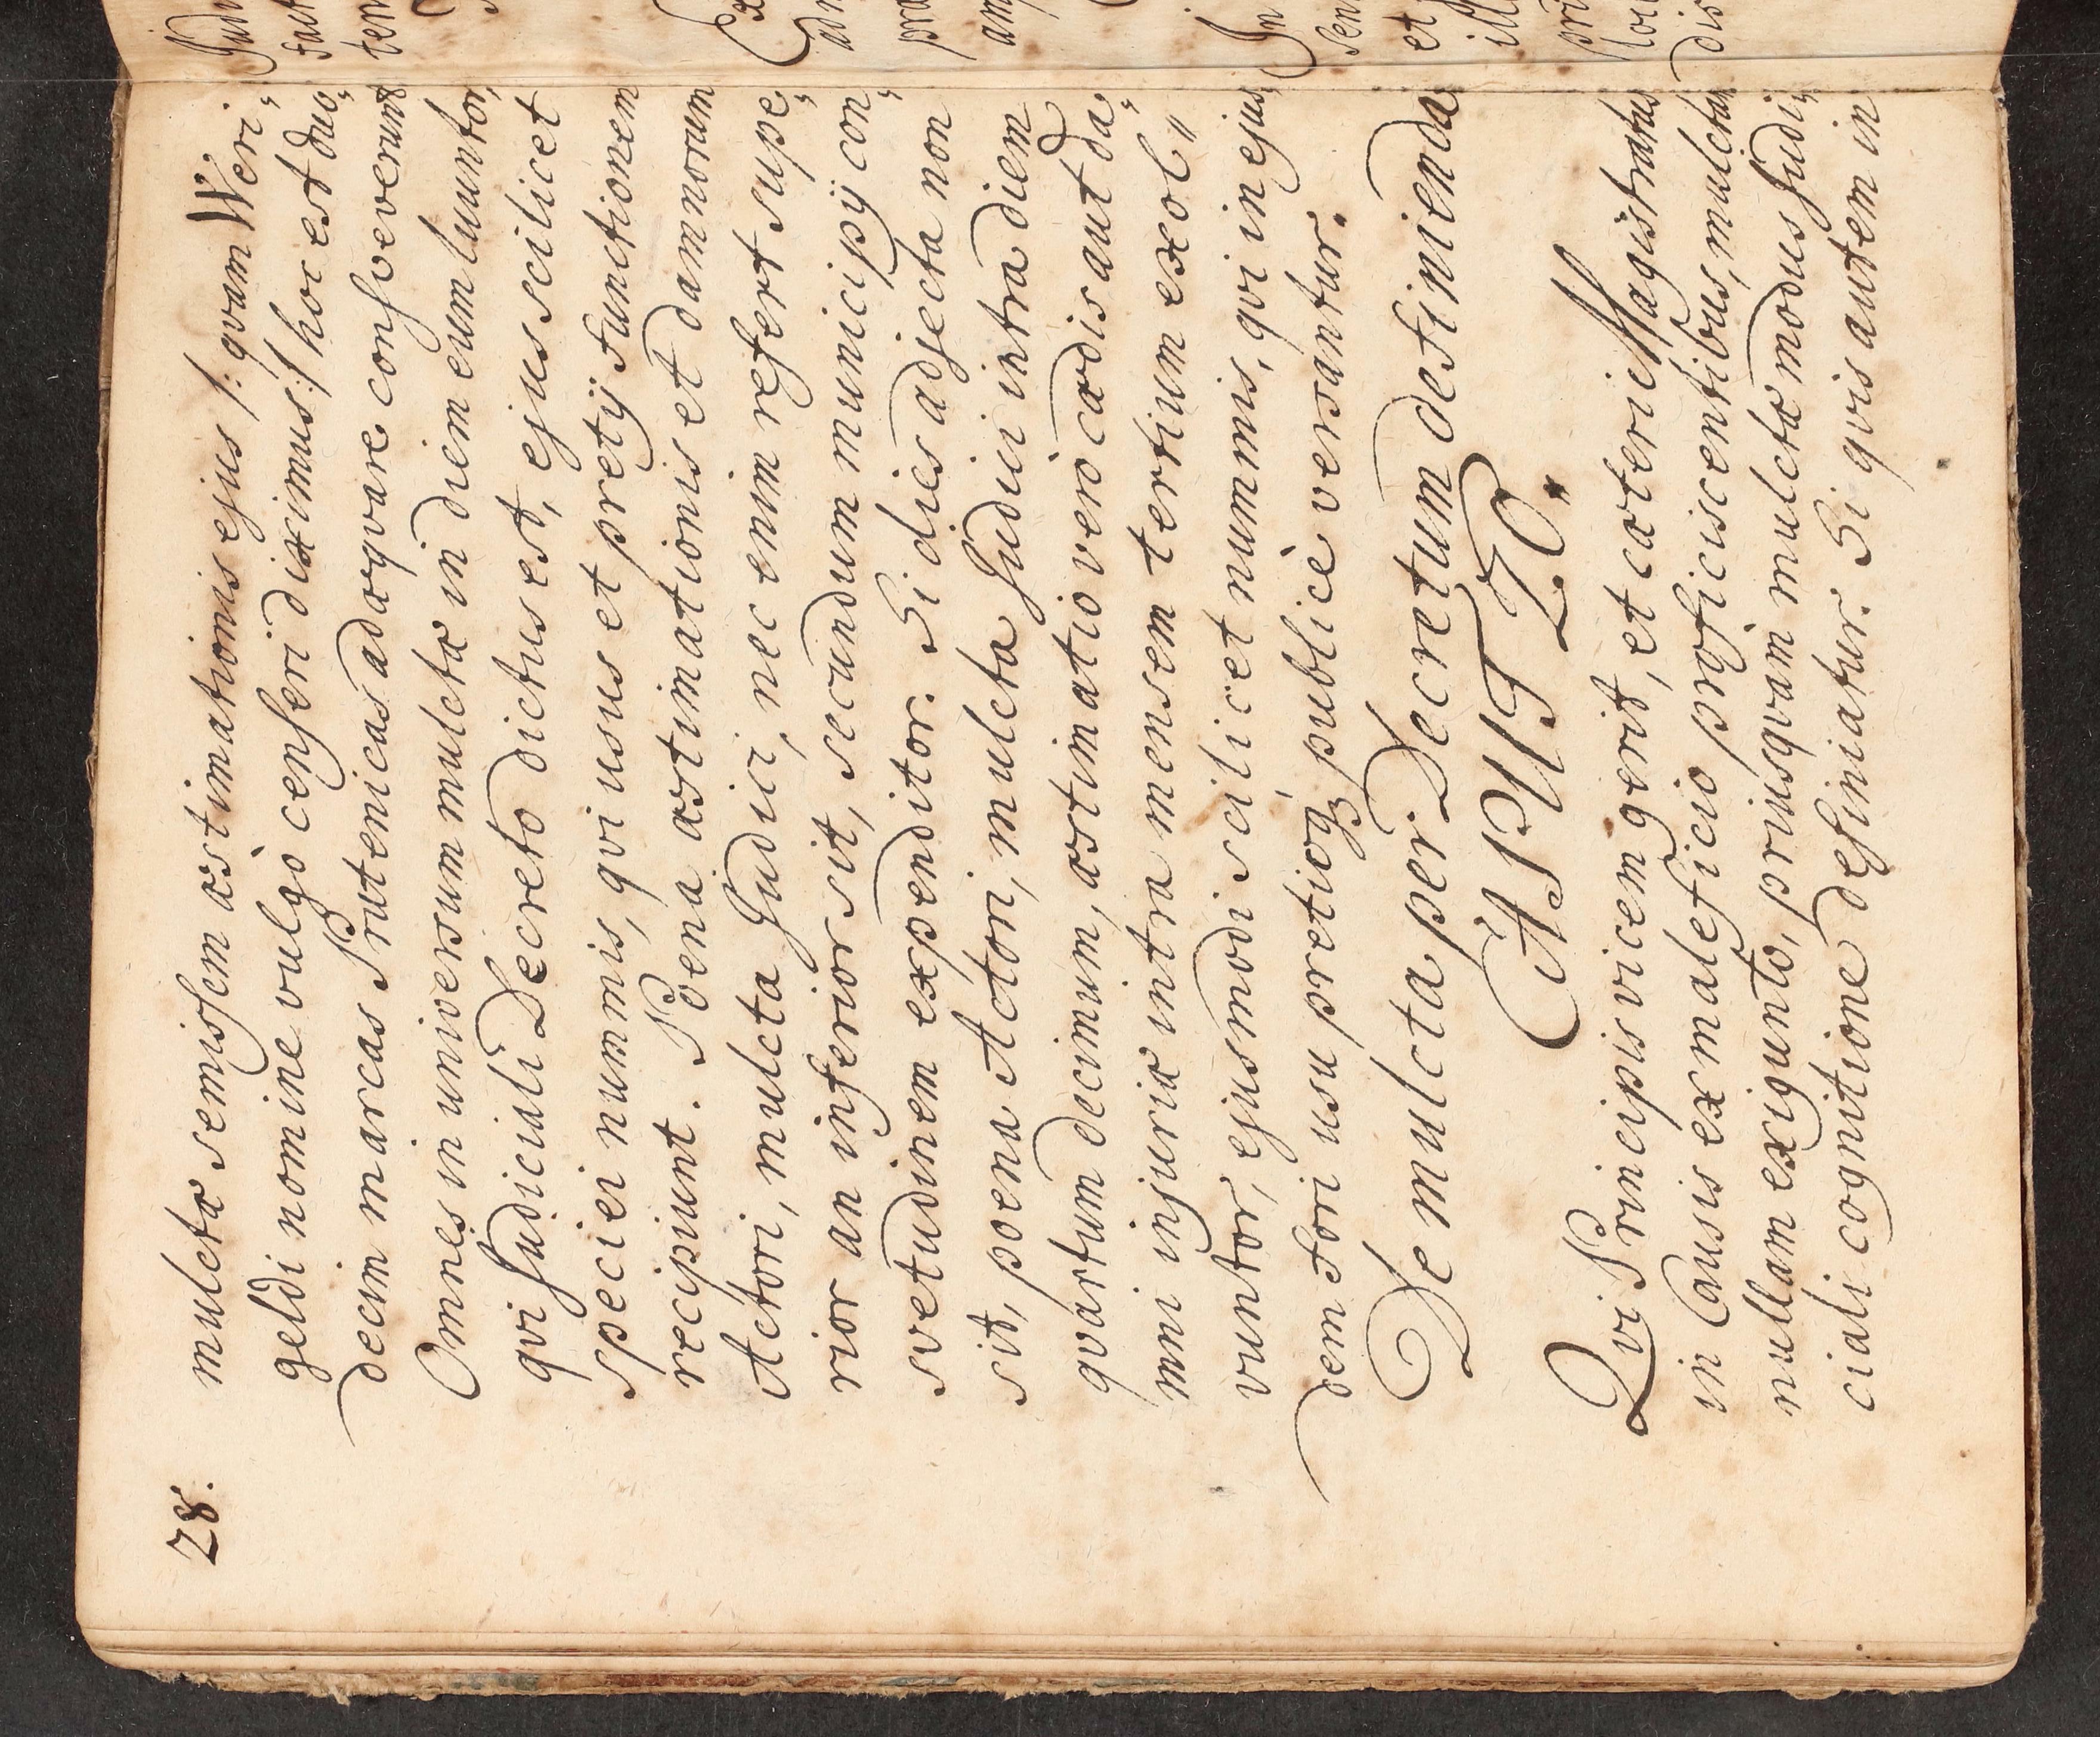 28.
mulctæ semissem æstimationis ejus /: qvam Weri„
geldi nomine vulgò censeri diximus :/ hoc est duo„
decim marcas Prutenicas adæqvare consveverunt
Omnes in universum mulctæ in diem eum luuntor,
qvi Judiciali Decreto dictus est, ejus scilicet
speciei nummis, qvi usus et pretij functionem
recipiunt. Poena æstimationis et damnorum
Actori, mulcta Judici, nec enim refert supe„
rior an inferior sit, secundum municipij con„
svetudinem expenditor. Si dies adjecta non
sit, poena Actori, mulcta Judici intra diem
qvartum decimum, æstimatio vero cædis aut da„
mni injuriæ intra mensem tertium exol„
vuntor, ejusmodi scilicet nummis, qvi in ejus„
dem fori usu pretioq; publicè versantur.
De mulcta per Decretum definienda
CAPUT 20.
Qvi Principis vicem gerit, et cæteri Magistratus
in Causis ex maleficio proficiscentibus, mulctam
nullam exigunto, priusqvam mulctæ modus Judi„
ciali cognitione definiatur. Si qvis autem in